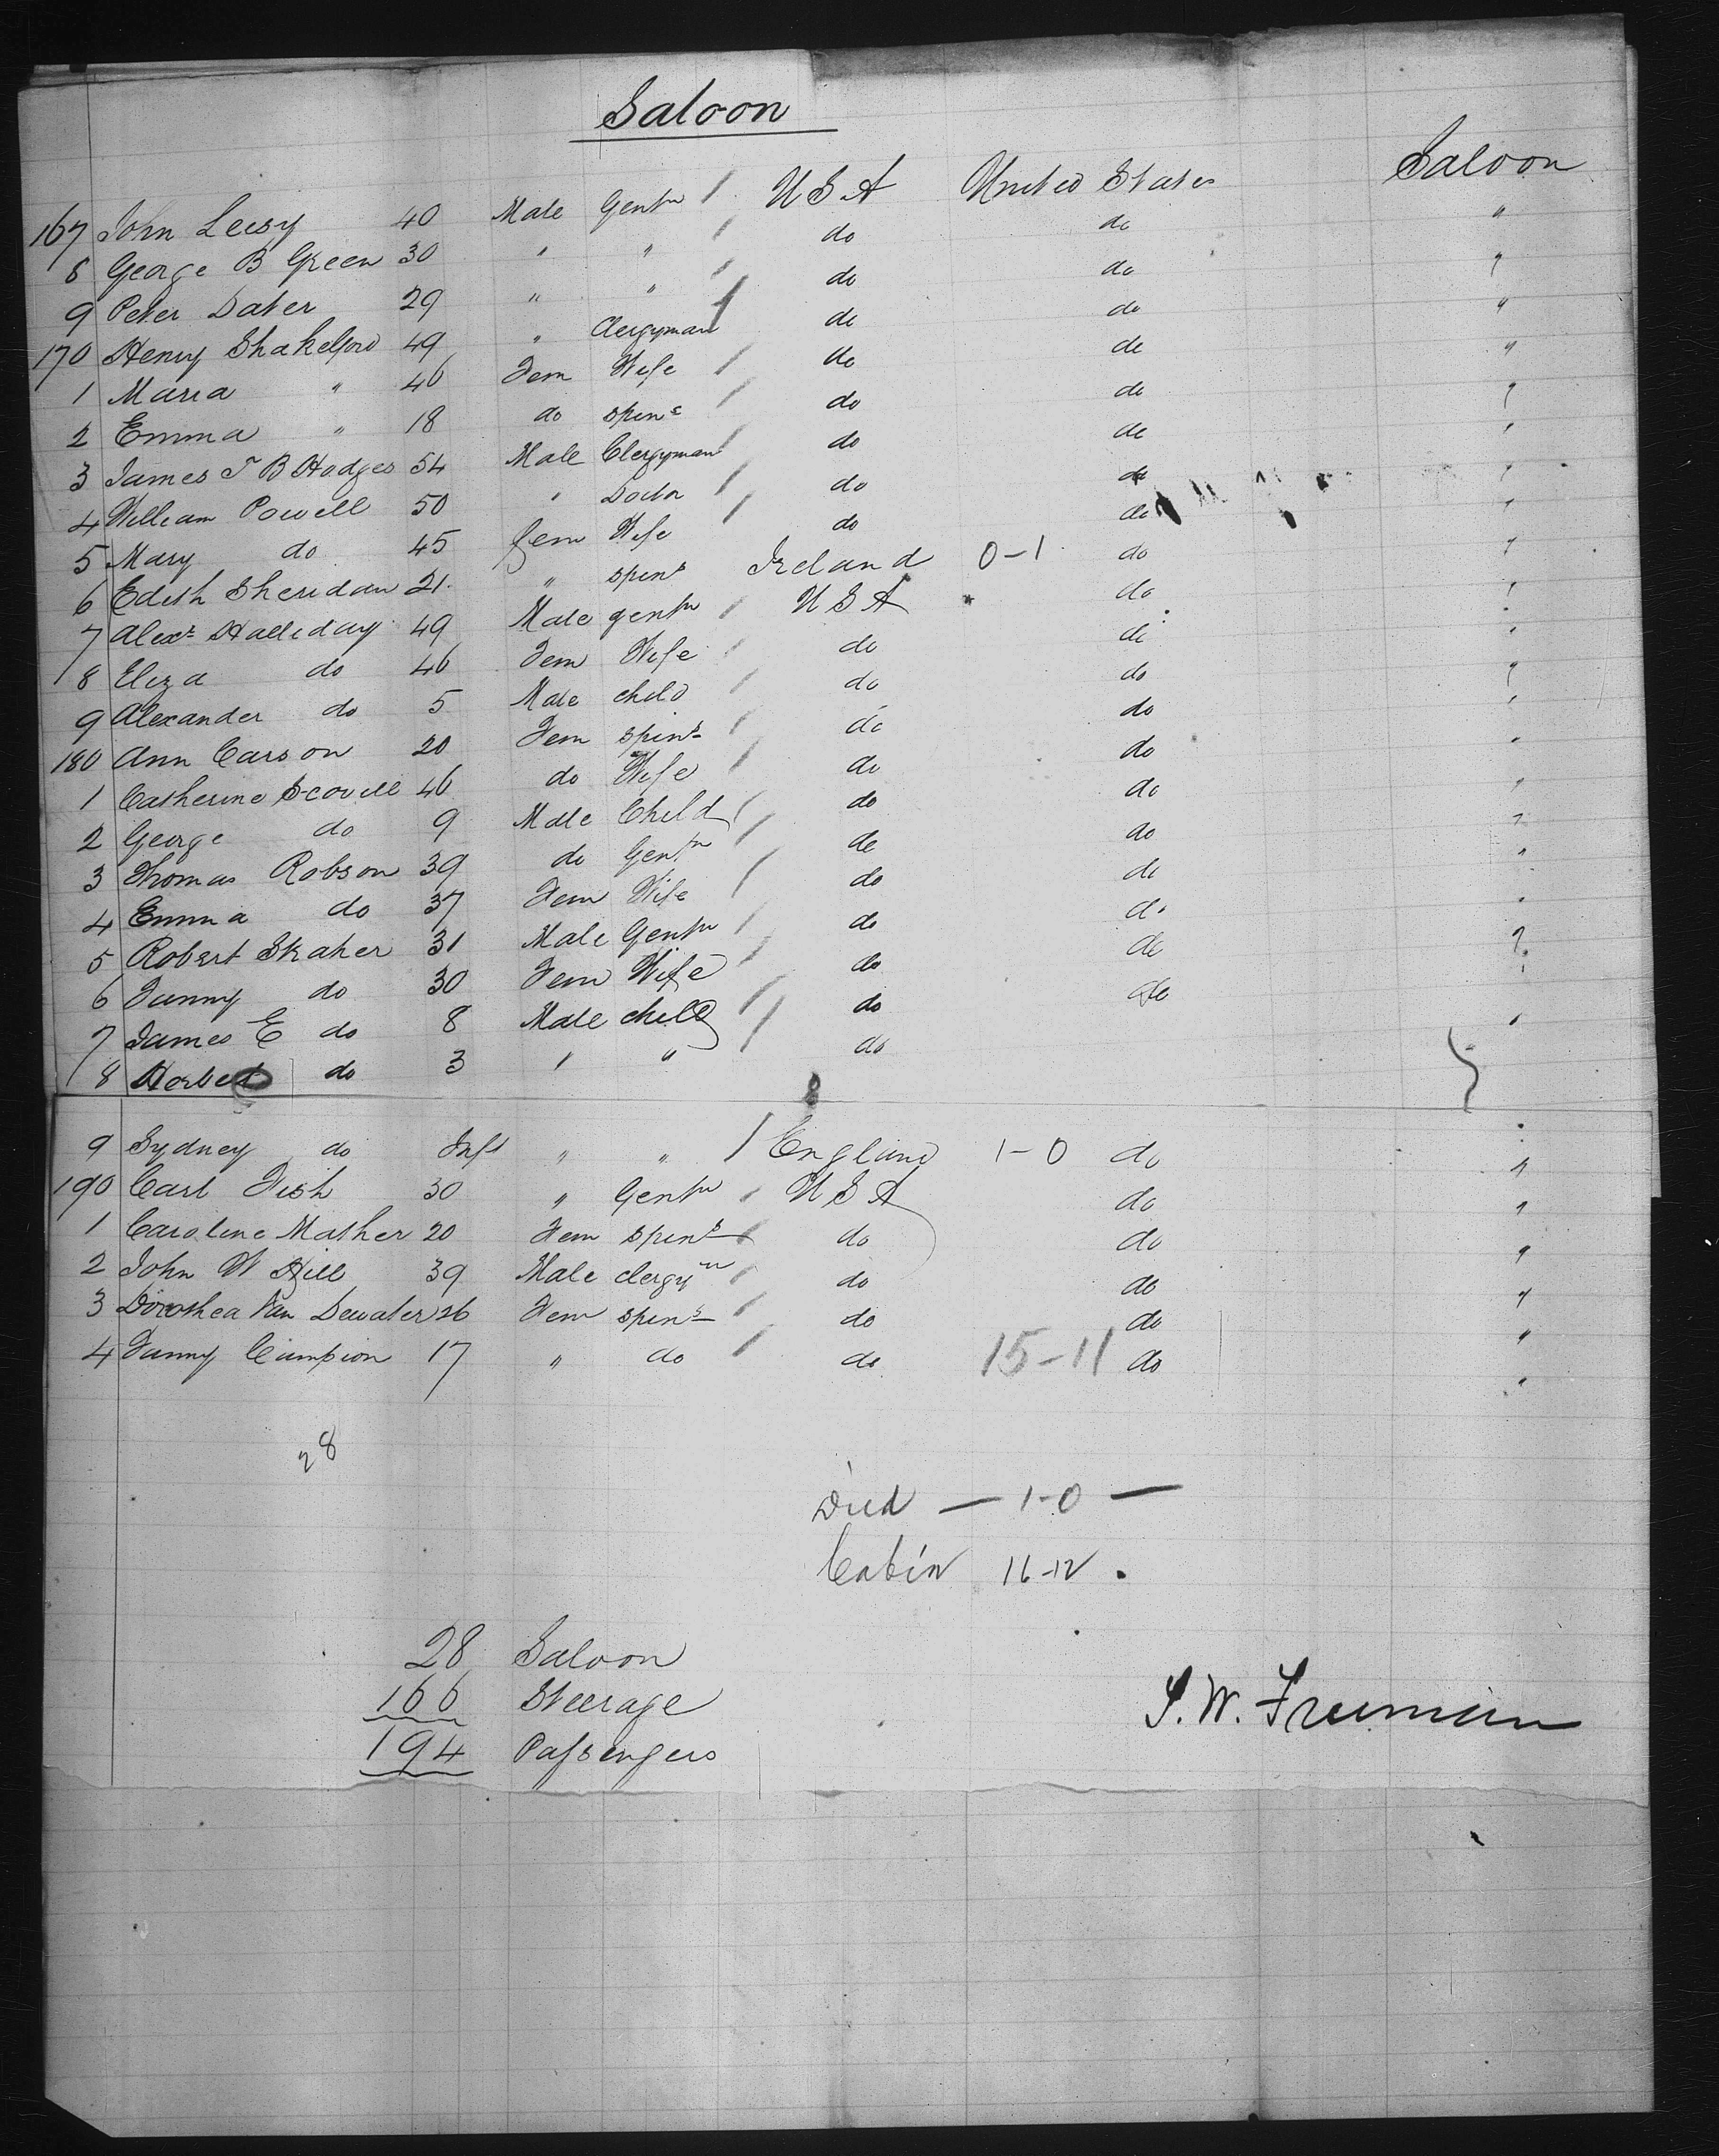 Saloon
167 John Leesy 40 Male Gentn / U S A United States Saloon
8 George B Green 30 " " / do do "
9 Peter Dater 29 " " / do do "
170 Henry Shakelford 49 " Clergyman / do do "
1 Maria " 46 Fem Wife / do do "
2 Emma " 18 do Spins / do do "
3 James T B Hodges 54 Male Clergyman / do do "
4 William Powell 50 " Doctor / do do "
5 Mary do 45 Fem Wife / do do "
6 Edith Sheridan 21 " Spins Ireland 0-1 do "
7 Alexr Halliday 49 Male gentn / U S A do "
8 Eliza do 46 Fem Wife / do do "
9 Alexander do 5 Male child / do do "
180 Ann Carson 20 Fem Spins / do do "
1 Catherine Scovill 46 do Wife / do do "
2 George do 9 Male Child / do do "
3 Thomas Robson 39 do Gentn / do do "
4 Emma do 37 Fem Wife / do do "
5 Robert Skaher 31 Male Gentn / do do "
6 Fanny do 30 Fem Wife / do do "
7 James E do 8 Male child / do do "
8 Herbert do 3 " " / do "
9 Sydney do Inft " " / England 1-0 do "
190 Carl Fish 30 " Gentn / U S A do "
1 Caroline Mather 20 Fem Spins / do do "
2 John W Hill 39 Male clergyn / do do "
3 Dorothea Van Dewater 26 Fem Spins / do do "
4 Fanny Campion 17 " do / do 15-11 do "
28
Died — 1-0 —
Cabin 16-12 .
28 Saloon
166 Steerage
194 Passengers
S. W. Freeman